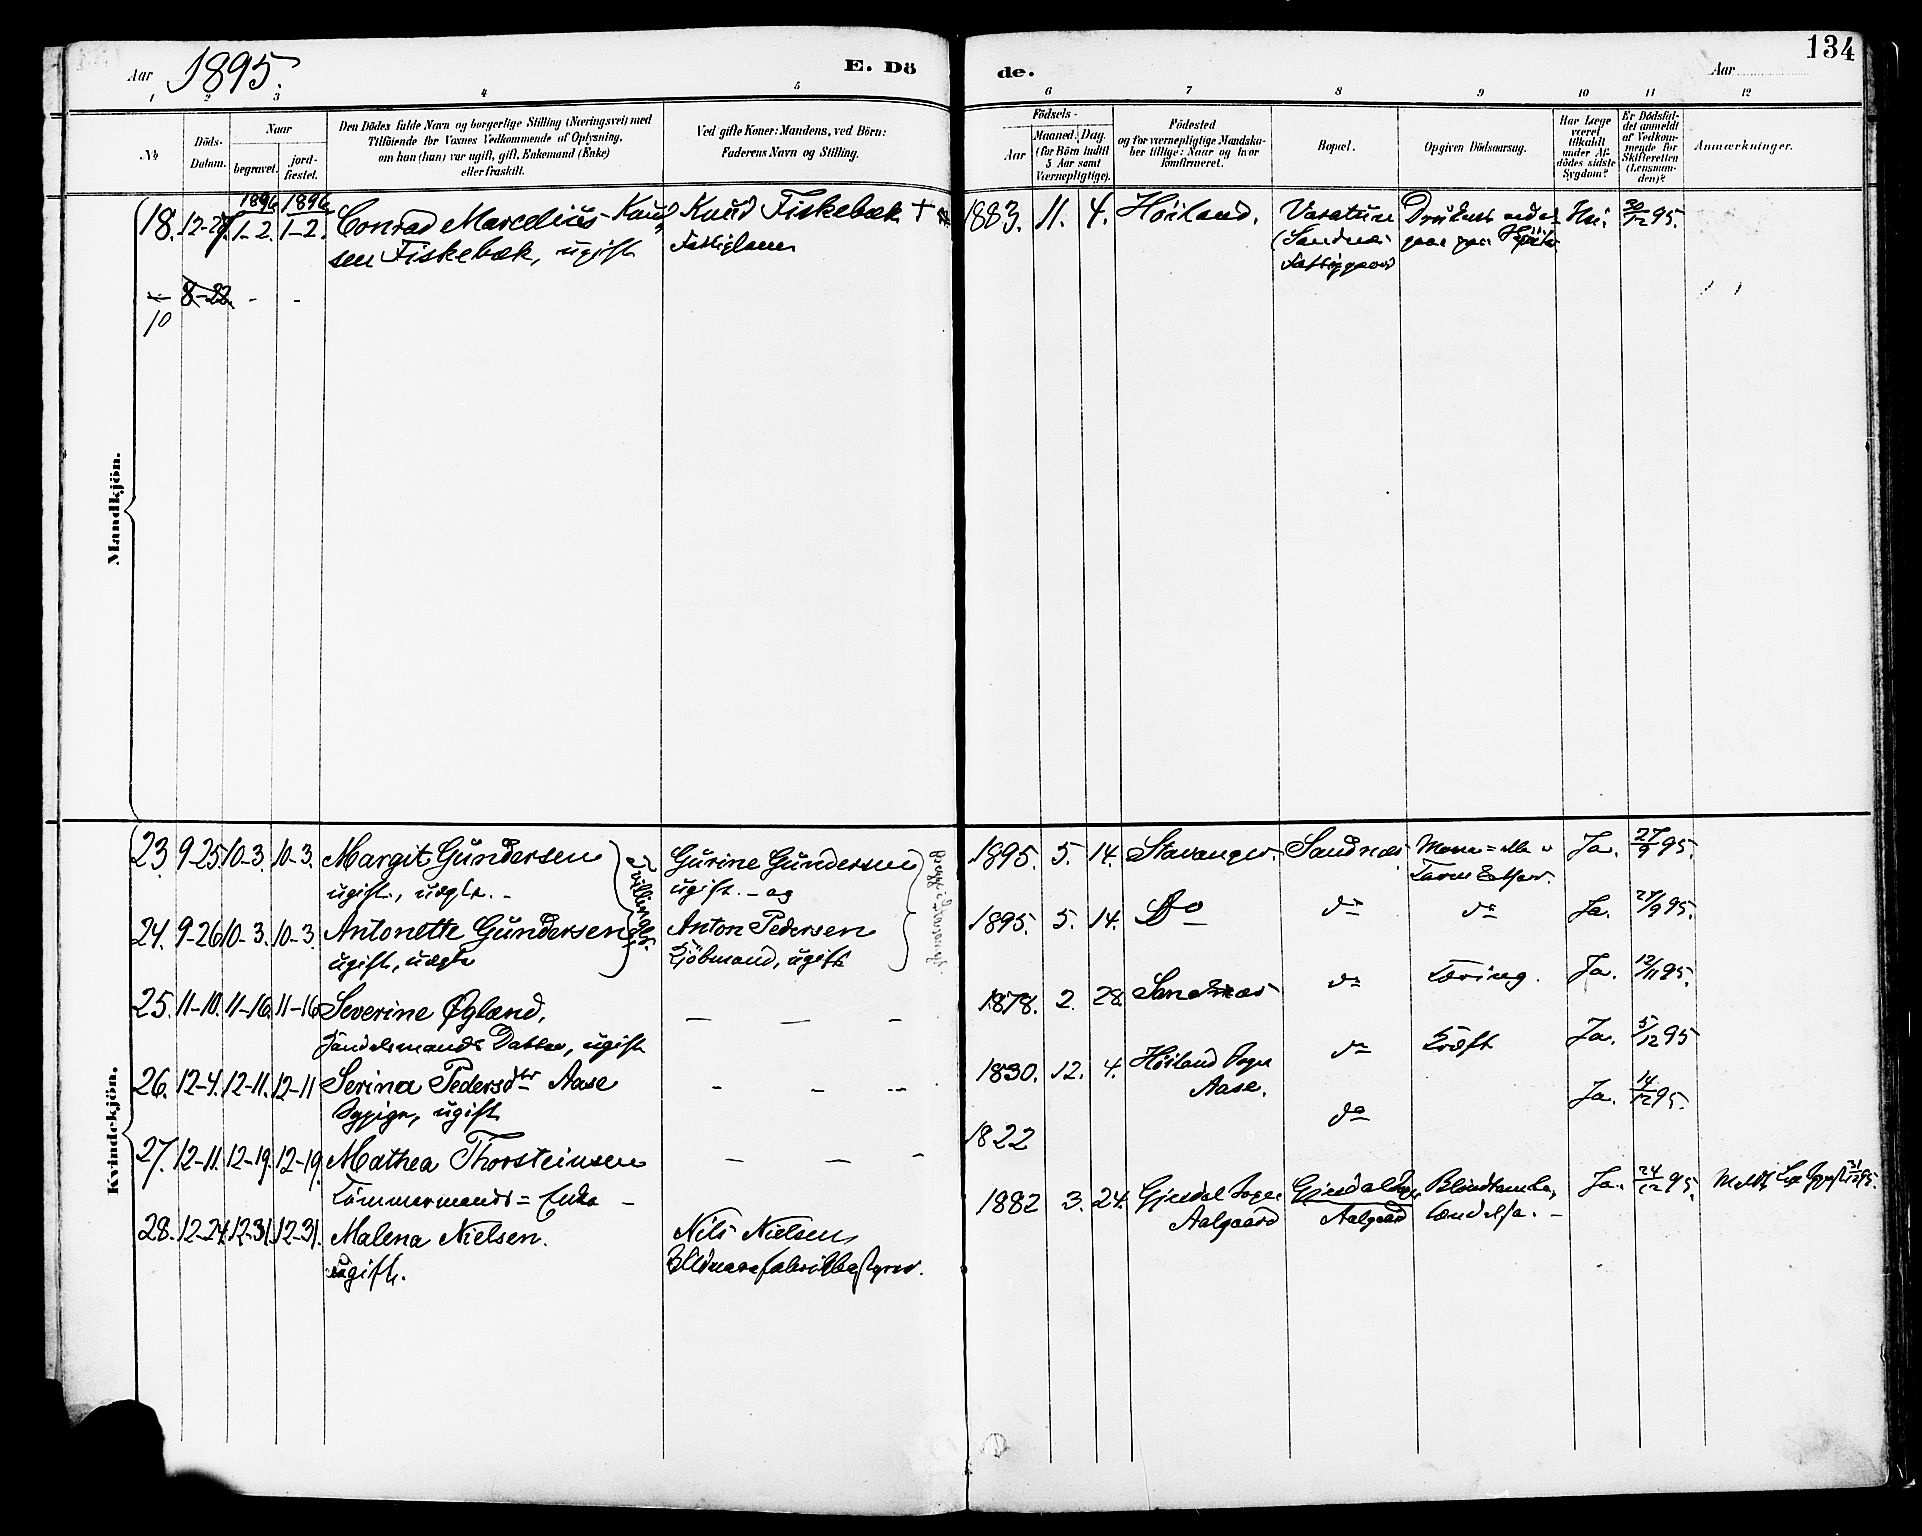 Aar 1895.
E. Dö
de.
Aar
134
1 2 3 4 5 6 7 8 9 10 11 12
No.
Döds-
Datum.
Naar
begravet.
jord-
fæstet.
Den Dödes fulde Navn og borgerlige Stilling (Næringsvei) med
Tilföiende for Voxnes Vedkommende af Oplysning,
om han (hun) var ugift, gift, Enkemand (Enke)
eller fraskilt.
Ved gifte Koner: Mandens, ved Börn:
Faderens Navn og Stilling.
Födsels-
Aar
Maaned. Dag.
(for Börn indtil
5 Aar samt
Værnepligtige).
Födested
og for værnepligtige Mandska-
ber tillige: Naar og hvor
konfirmeret.
Bopæl.
Opgiven Dödsaarsag.
Har Læge
været
tilkaldt
under Af-
dödes sidste
Sygdom?
Er Dödsfal-
det anmeldt
af Vedkom-
mende for
Skifteretten
(Lensman-
den)?
Anmærkninger.
Mandkjön.
1896 1896
18. 12-27. 1-2. 1-2. Conrad Marcelius Knud- Knud Fiskebæk + 1883. 11. 4. Höiland. Vatne
sen Fiskebæk, ugift Fattiglem
(Sandnæs
Fattiggaard
Nei 30/12 95.
8-22. - -
10
Kvindekjön.
23. 9-25. 10-3. 10-3. Margit Gundersen Gurine Gundersen 1895. 5. 14. Stavanger. Sandnæs Ja. 27/9 95.
ugift, uægte. - ugift. - og
Tvillinger.
24. 9-26. 10-3. 10-3. Antonette Gundersen Anton Pedersen 1895. 5. 14. Do do do Ja. 27/9 95.
ugift, uægte Kjöbmand, ugift
25. 11-10. 11-16. 11-16. Severine Øgland, — — - 1878. 2. 28. Sandnæs do Tæring. Ja. 12/11 95.
Handelsmands Datter, ugift
26. 12-4. 12-11. 12-11 Serina Pedersdtr Aase - - - 1830. 12. 4. Höiland Sogn do Kræft Ja. 5/12 95
Sypige, ugift Aase.
27. 12-11. 12-19. 12-19. Mathea Thorsteinsen — — - 1822 do Ja. 14/12 95.
Tömmermands = Enke -
28. 12-24. 12-31. 12-31. Malena Nielsen. Nils Nielsen, 1882 3. 24. Gjesdal Sogn Gjesdal Sogn Blindtarmbe- Ja. 24/12 95.
ugift. Uldvarefabrikbestyrer. Aalgaard Aalgaard tændelse. -